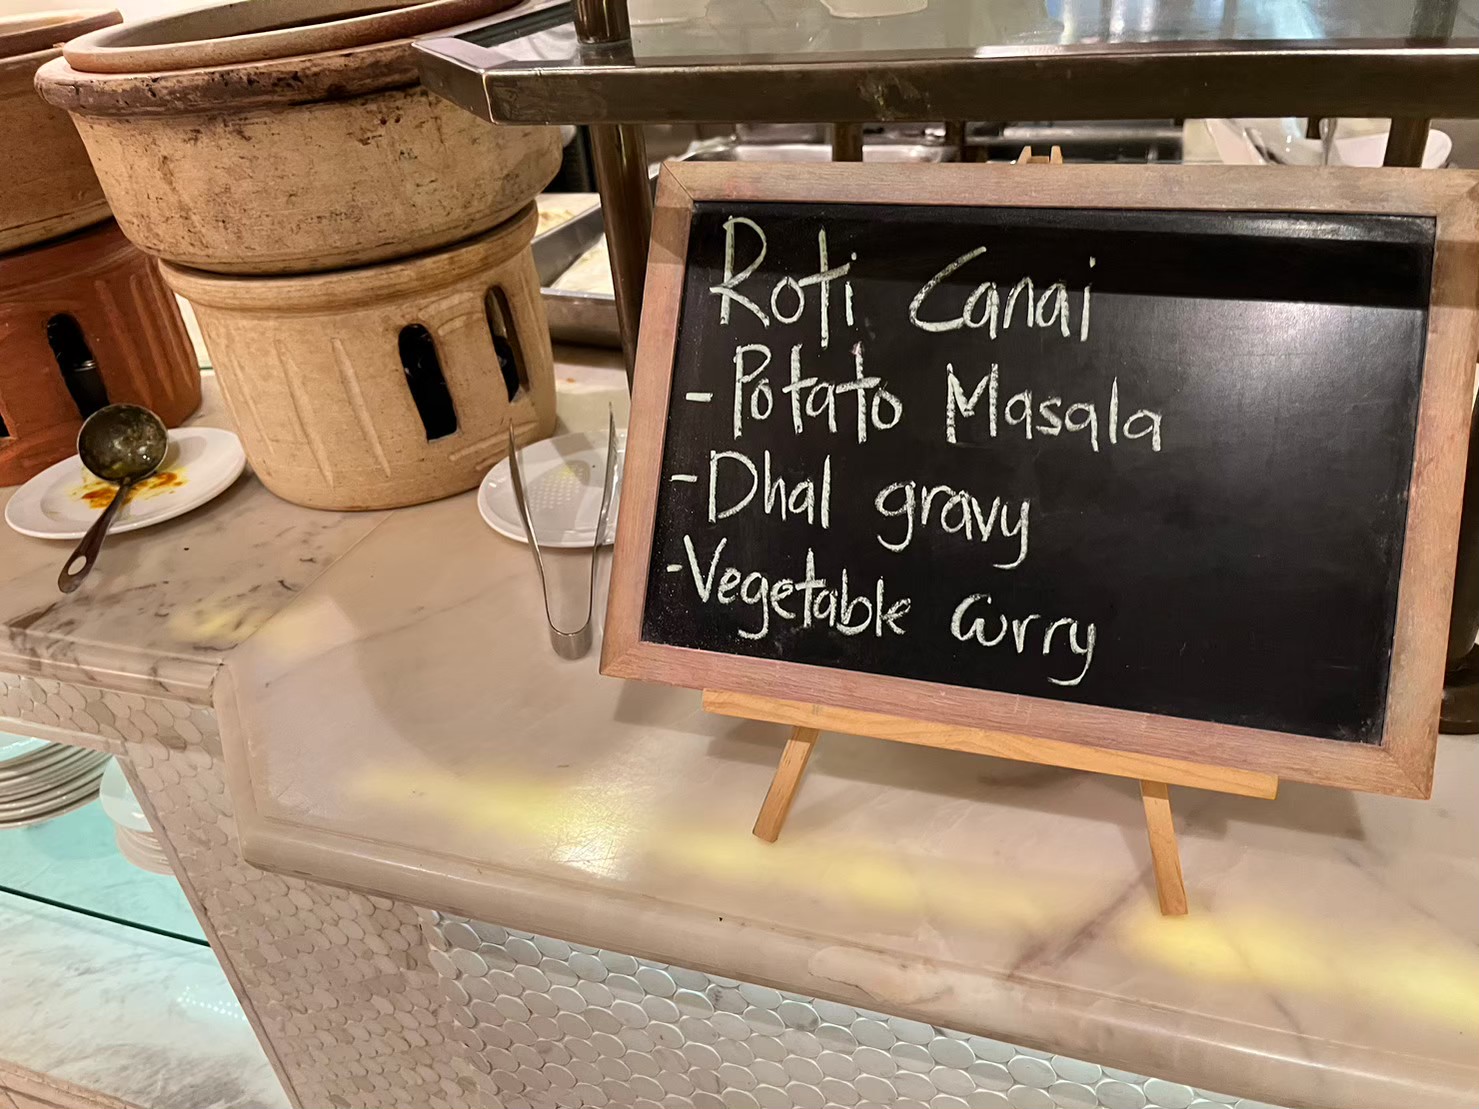 Roti Canai
- Potato Masala
- Dhal gravy
- Vegetable Curry